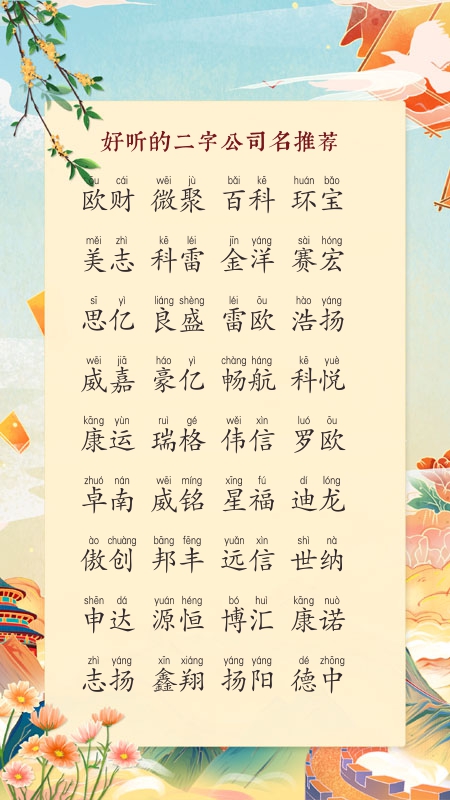 好听的二字公司名推荐
ōu cái wēi jù bǎi kē huán bǎo
欧财 微聚 百科 环宝
měi zhì kē léi jīn yáng sài hóng
美志 科雷 金洋 赛宏
sī yì liáng shèng léi ōu hào yáng
思亿 良盛 雷欧 浩扬
wēi jiā háo yì chàng háng kē yuè
威嘉 豪亿 畅航 科悦
kāng yùn ruì gé wěi xìn luó ōu
康运 瑞格 伟信 罗欧
zhuó nán wēi míng xīng fú dí lóng
卓南 威铭 星福 迪龙
ào chuàng bāng fēng yuǎn xìn shì nà
傲创 邦丰 远信 世纳
shēn dá yuán héng bó huì kāng nuò
申达 源恒 博汇 康诺
zhì yáng xīn xiáng yáng yáng dé zhōng
志扬 鑫翔 扬阳 德中